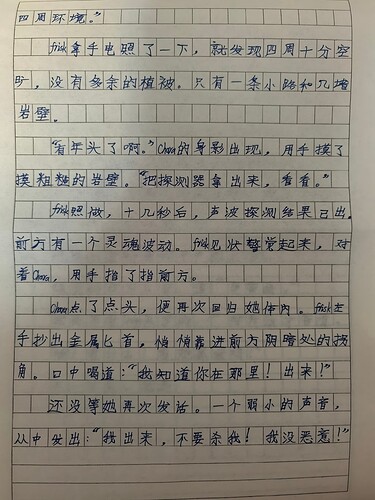 四周环境。”
frisk拿手电照了一下，就发现四周十分空
旷，没有多余的植被。只有一条小路和几堵
岩壁。
“有年头了啊。”Chara的身影出现，用手摸了
摸粗糙的岩壁。“把探测器拿出来，看看。”
frisk照做，十几秒后，声波探测结果已出。
前方有一个灵魂波动。frisk见状警觉起来，对
着Chara，用手指了指前方。
Chara点了点头，便再次回归她体内。frisk左
手抄出金属匕首，悄悄靠进前方阴暗处的拐
角。口中喝道：“我知道你在那里！出来！”
还没等她再次发话。一个弱小的声音，
从中发出：“我出来，不要杀我！我没恶意！”